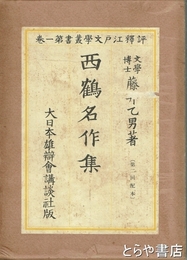 評釋江戸文學叢書第一卷
文學博士 藤井乙男著
西鶴名作集
(第一回配本)
大日本雄辯會講談社版
とらや書店